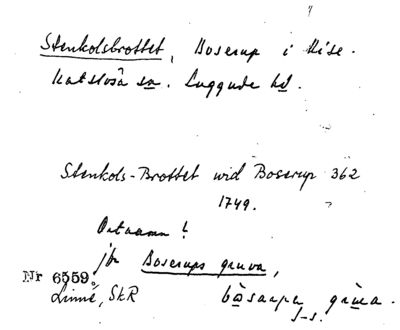 Stenkolsbrottet, Boserup i Rise.
Katslösa sn. Luggude hd.
Stenkols-Brottet wid Boserup 362
1749.
Ortnamn!
jfr Boserups gruva,
Nr 6559.
Linné, SkR
bosarps